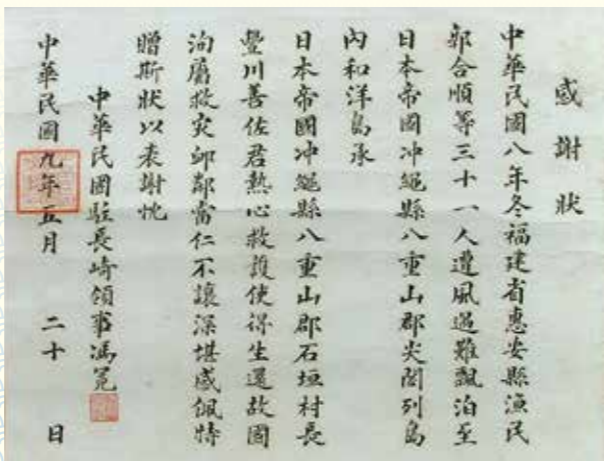 感謝狀
中華民國八年冬福建省惠安縣漁民
郭合順等三十一人遭風遇難飄泊至
日本帝國冲繩縣八重山郡尖閣列島
內和洋島承
日本帝國冲繩縣八重山郡石垣村長
豐川善佐君熱心救護使得生還故國
洵屬救灾卹鄰當仁不讓深堪感佩特
贈斯狀以表謝忱
中華民國駐長崎領事馮冕
中華民國九年五月二十日